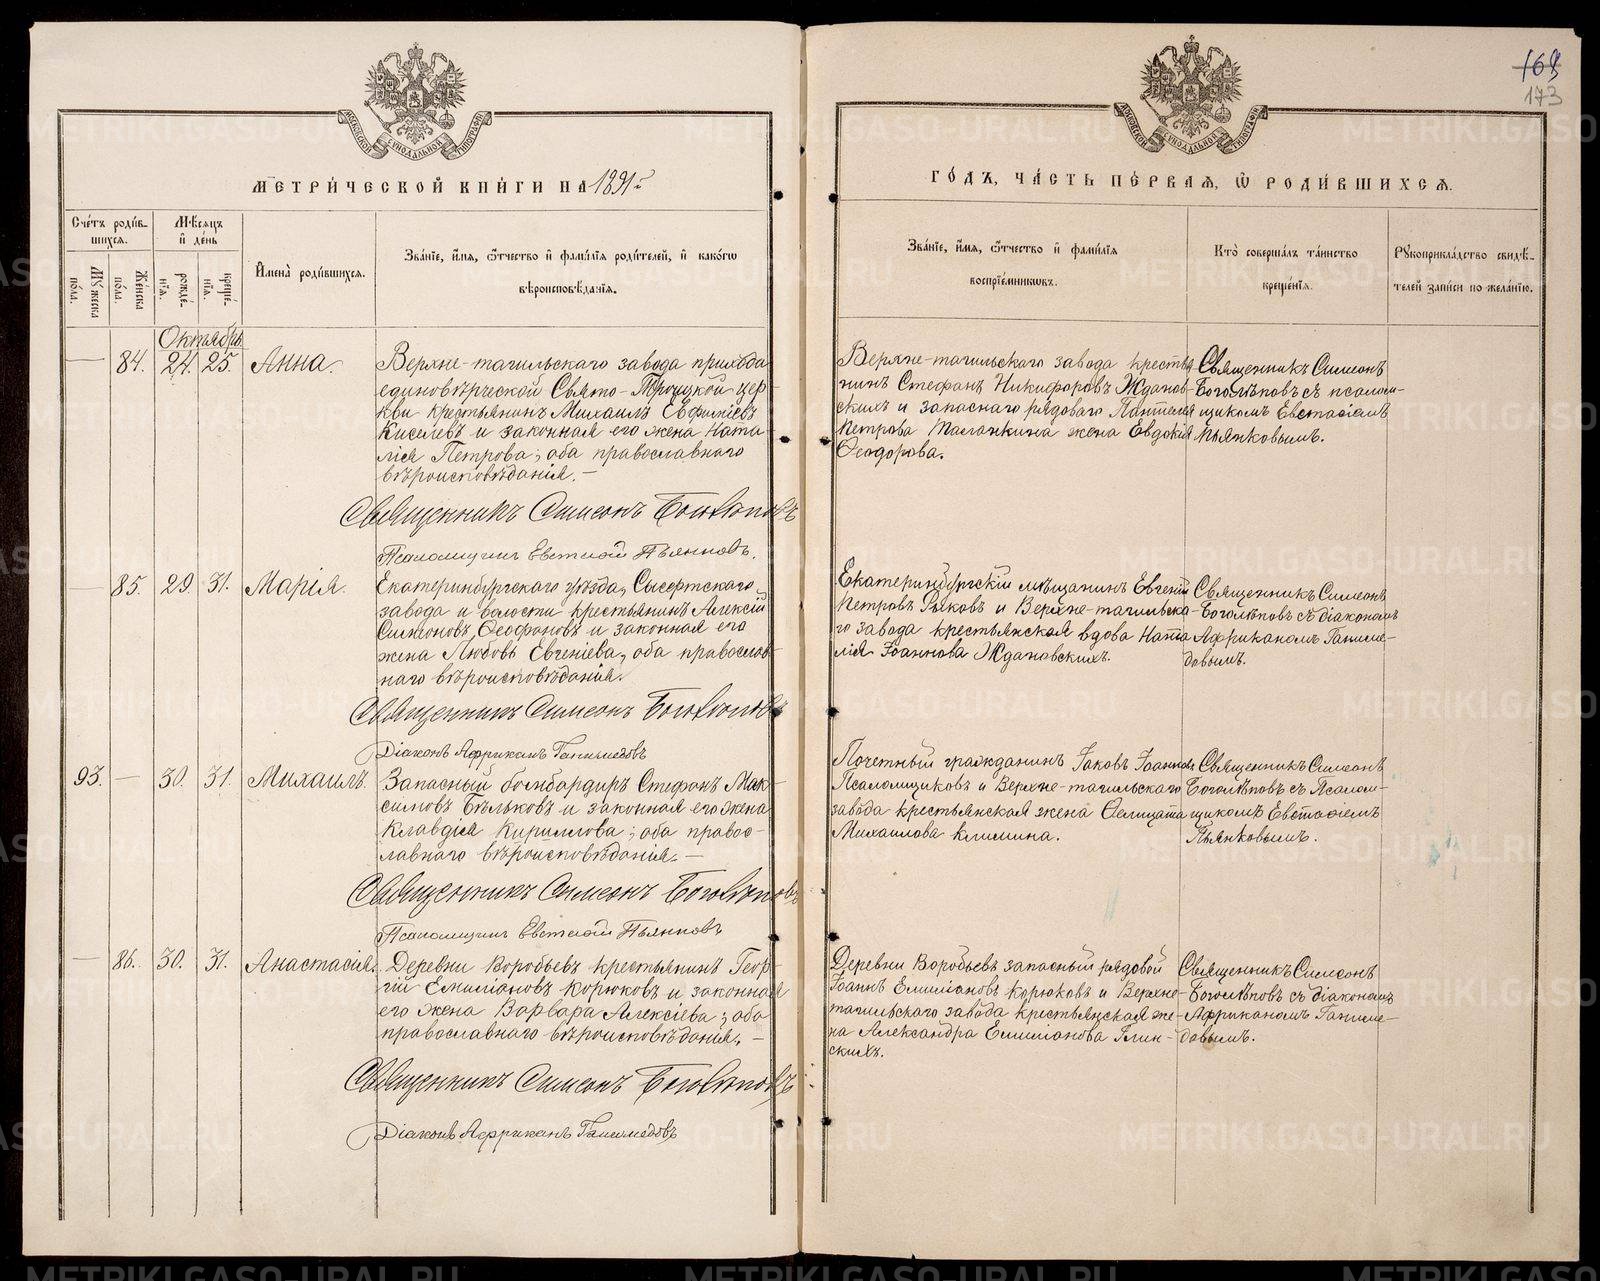 168
173
МОСКОВСКОЙ СУНОДАЛЬНОЙ ТИПОГРАФІИ
МОСКОВСКОЙ СУНОДАЛЬНОЙ ТИПОГРАФІИ
МЕТРИ́ЧЕСКОЙ КНИ́ГИ НА 1891й
ГО́ДЪ, ЧА́СТЬ ПЕ́РВАЯ, Ѡ РОДИ́ВШИХСЯ.
Сче́тъ роди́в-
шихся.
Мꙋжеска по́ла.
Же́нска по́ла.
Мѣ́сяцъ
и҆ де́нь
рожде́-
нїя.
креще́-
нїя.
И҆мена̀ роди́вшихся.
Зва́нїе, и҆́мя, ѻ҆́тчество и҆ фами́лїя роди́телей, и҆ како́гѡ
вѣроисповѣ́данїя.
Зва́нїе, и҆́мя, ѻ҆́тчество и҆ фами́лїя
воспрїе́мниковъ.
Кто̀ соверша́лъ та́инство
креще́нїя.
Рꙋкоприкла́дство свидѣ́-
телей за́писи по жела́нїю.
Октябрь
— 84. 24. 25. Анна.
Верхне-тагильскаго завода прихода
единовѣрческой Свято-Троицкой цер-
кви крестьянинъ Михаилъ Евфиміевъ
Киселевъ и законная его жена Ната-
лія Петрова; оба православнаго
вѣроисповѣданія.—
Священникъ Симеонъ Боголѣповъ
Псаломщикъ Евстафій Пьянковъ.
Верхне-тагильскаго завода кресть-
нинъ Стефанъ Никифоровъ Жданов-
скихъ и запаснаго рядоваго Пантелея
Петрова Палачкина жена Евдокія
Ѳеодорова.
Священникъ Симеонъ
Боголѣповъ съ псалом-
щикомъ Евстафіемъ
Пьянковымъ.
— 85. 29. 31. Марія.
Екатеринбургскаго уѣзда, Сысертскаго
завода и волости крестьянинъ Алексій
Симоновъ Ѳеофановъ и законная его
жена Любовь Евгеніева, оба православ-
наго вѣроисповѣданія.
Священникъ Симеонъ Боголѣповъ
Діаконъ Африканъ Ганимедовъ
Екатеринбургскій мѣщанинъ Евгеній
Петровъ Рыковъ и Верхне-тагильска-
го завода крестьянская вдова Ната-
лія Іоаннова Ждановскихъ.
Священникъ Симеонъ
Боголѣповъ съ діакономъ
Африканомъ Ганиме-
довымъ.
93. — 30. 31. Михаилъ.
Запасный бомбардиръ Стефанъ Мак-
симовъ Бѣльковъ и законная его жена
Клавдія Кириллова; оба правос-
лавнаго вѣроисповѣданія.—
Священникъ Симеонъ Боголѣповъ
Псаломщикъ Евстафій Пьянковъ
Почетный гражданинъ Іаковъ Іоанновъ
Псаломщиковъ и Верхне-тагильскаго
завода крестьянская жена Фелицата
Михаилова Климина.
Священникъ Симеонъ
Боголѣповъ съ Псалом-
щикомъ Евстафіемъ
Пьянковымъ.
— 86. 30. 31. Анастасія.
Деревни Воробьевъ крестьянинъ Геор-
гій Емиліановъ Корюковъ и законная
его жена Варвара Алексіева; оба
православнаго вѣроисповѣданія.—
Священникъ Симеонъ Боголѣповъ
Діаконъ Африканъ Ганимедовъ
Деревни Воробьевъ запасный рядовой
Іоаннъ Емиліановъ Корюковъ и Верхне-
тагильскаго завода крестьянская же-
на Александра Емиліанова Глин-
скихъ.
Священникъ Симеонъ
Боголѣповъ съ діакономъ
Африканомъ Ганиме-
довымъ.
METRIKI.GASO-URAL.RU